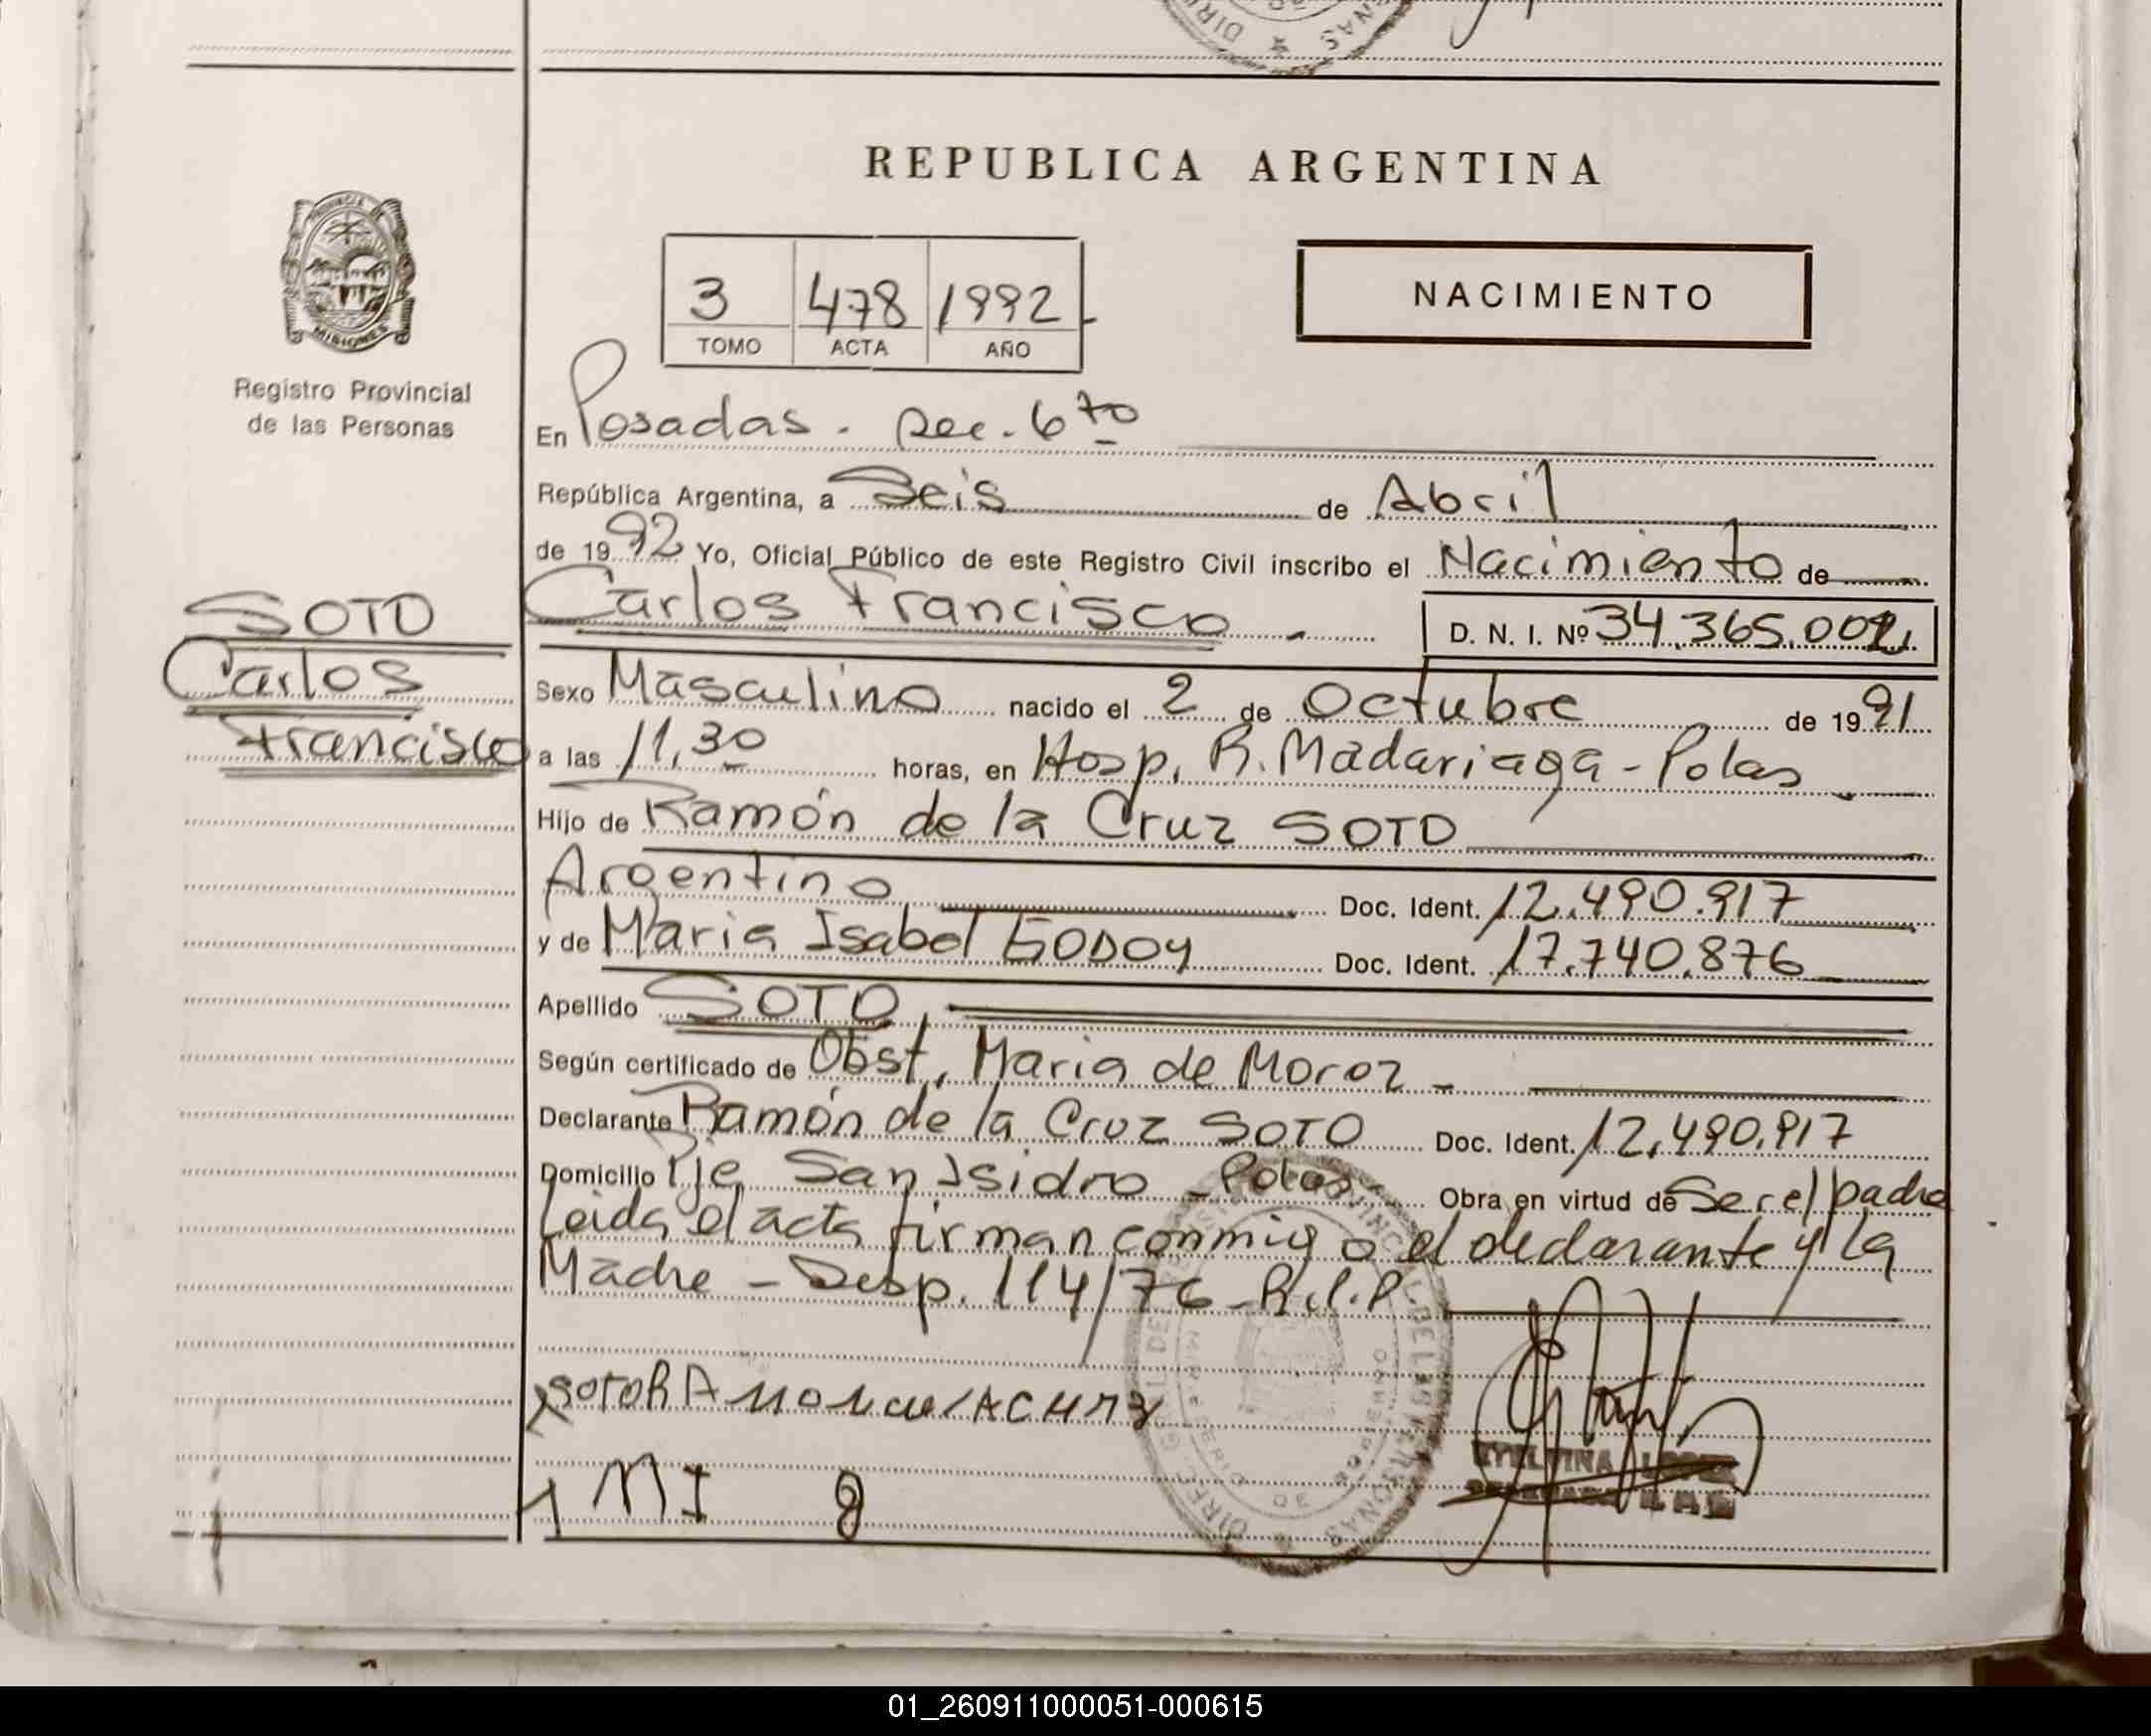 REPUBLICA ARGENTINA
PROVINCIA DE
MISIONES
Registro Provincial
de las Personas
3 478 1992
TOMO ACTA AÑO
NACIMIENTO
En Posadas. Sec. 6to
República Argentina, a Seis de Abril
de 1992 Yo, Oficial Público de este Registro Civil inscribo el Nacimiento de
SOTO
Carlos
Francisco
Carlos Francisco. D. N. I. Nº 34.365.002.
Sexo Masculino nacido el 2 de Octubre de 1991
a las 11,30 horas, en Hosp. R. Madariaga - Pdas
Hijo de Ramón de la Cruz SOTO
Argentino Doc. Ident. 12.490.917
y de Maria Isabel GODOY Doc. Ident. 17.740.876
Apellido SOTO
Según certificado de Obst. Maria de Moroz -
Declarante Ramón de la Cruz SOTO Doc. Ident. 12.490.917
Domicilio Pje San Isidro - Pdas Obra en virtud de Ser el padre
Leida el acta firman conmigo el declarante y la
Madre - Desp. 114/76 -
MI g
LOPEZ
01_260911000051-000615